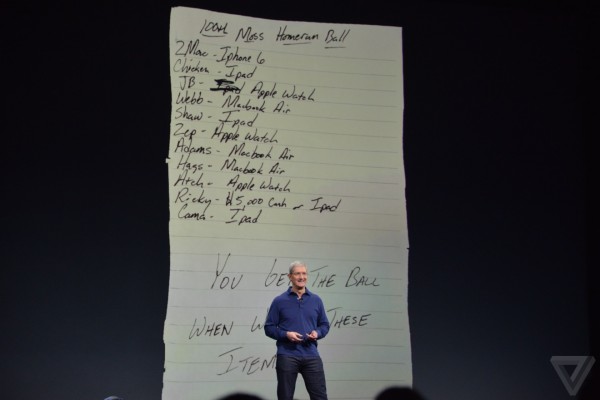 100th Moss Homerun Ball
ZMac - Iphone 6
Chicken - Ipad
JB - Ipad Apple Watch
Webb - Macbook Air
Shaw - Ipad
Zep - Apple Watch
Adams - Macbook Air
Hags - Macbook Air
Atch - Apple Watch
Ricky - $5,000 Cash or Ipad
Cama - Ipad
YOU GET THE BALL
WHEN THESE
ITEM